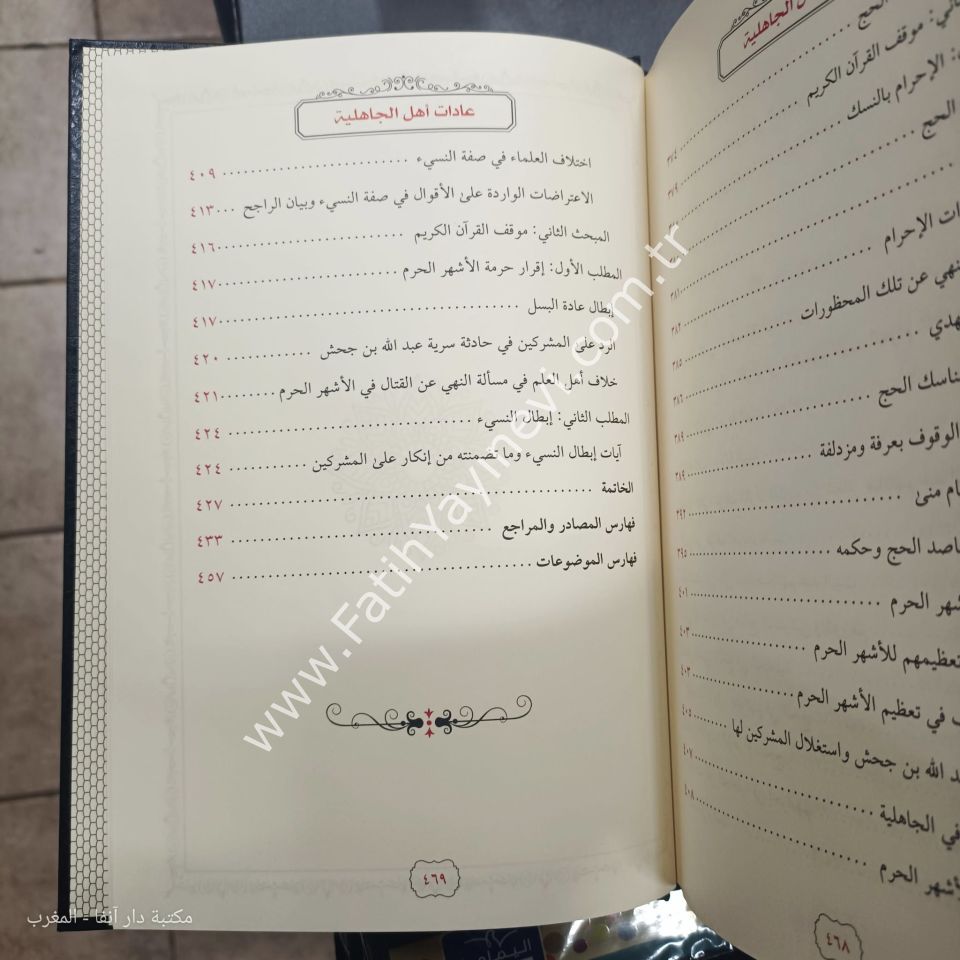 الجاهلية
الحج
موقف القرآن الكريم
الإحرام بالنسك ٣٧٤
الحج ٣٧٩
الإحرام ٣٨١
عن تلك المحظورات ٣٨٢
٣٨٥
الحج ٣٨٦
الوقوف بعرفة ومزدلفة ٣٨٩
منىٰ ٣٨٩
٣٩٢
الحج وحكمه ٣٩٥
الحرم ٤٠١
تعظيمهم للأشهر الحرم ٤٠٣
في تعظيم الأشهر الحرم ٤٠٣
الله بن جحش واستغلال المشركين لها ٤٠٥
في الجاهلية ٤٠٧
الحرم ٤٠٨
٤٦٨
عادات أهل الجاهلية
اختلاف العلماء في صفة النسيء ٤٠٩
الاعتراضات الواردة علىٰ الأقوال في صفة النسيء وبيان الراجح ٤١٣
المبحث الثاني: موقف القرآن الكريم ٤١٦
المطلب الأول: إقرار حرمة الأشهر الحرم ٤١٧
إبطال عادة البسل ٤١٧
الرد علىٰ المشركين في حادثة سرية عبد الله بن جحش ٤٢٠
خلاف أهل العلم في مسألة النهي عن القتال في الأشهر الحرم ٤٢١
المطلب الثاني: إبطال النسيء ٤٢٤
آيات إبطال النسيء وما تضمنته من إنكار علىٰ المشركين ٤٢٤
الخاتمة ٤٢٧
فهارس المصادر والمراجع ٤٣٣
فهارس الموضوعات ٤٥٧
٤٦٩
www.FatihYayinevi.com.tr
مكتبة دار آنفا - المغرب